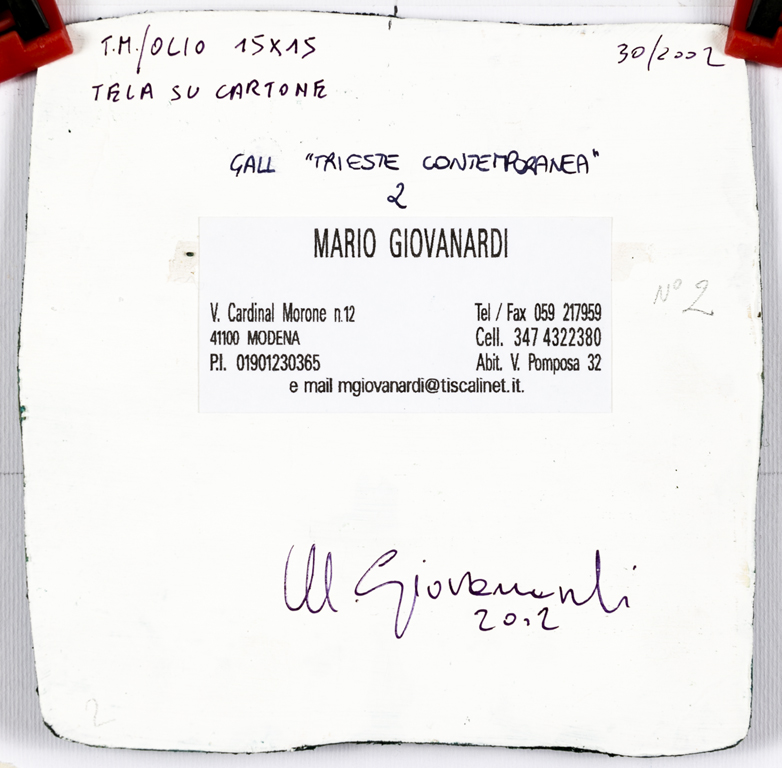 T.M./OLIO 15X15
30/2002
TELA SU CARTONE
GALL "TRIESTE CONTEMPORANEA"
2
MARIO GIOVANARDI
V. Cardinal Morone n.12
Tel / Fax 059 217959
41100 MODENA
Cell. 347 4322380
P.I. 01901230365
Abit. V. Pomposa 32
e mail mgiovanardi@tiscalinet.it.
N° 2
M Giovanardi
2002
2